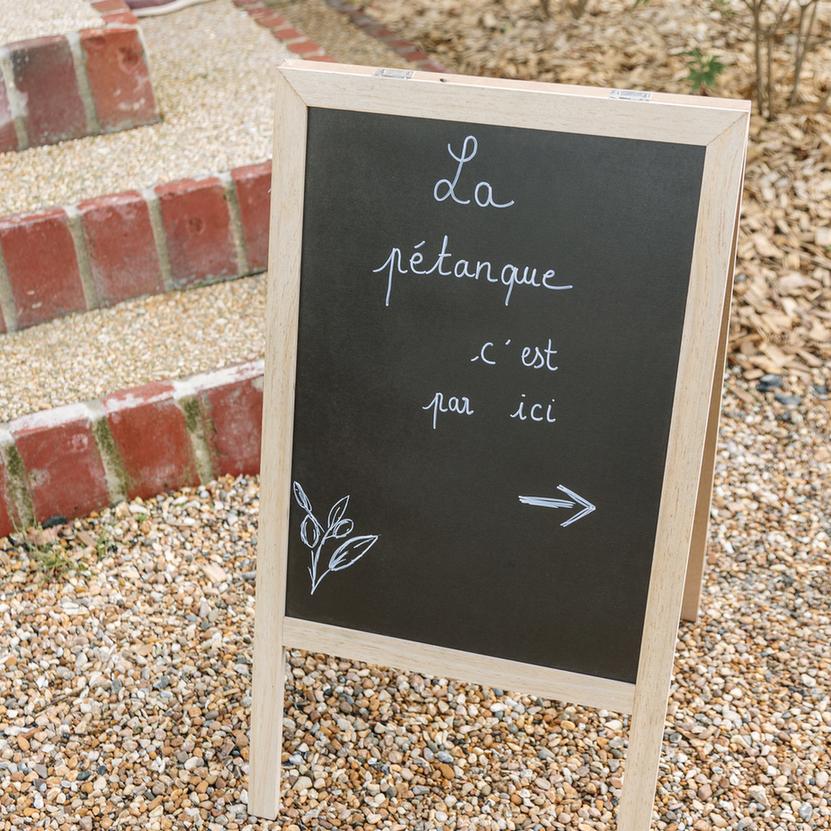 La
pétanque
c'est
par ici